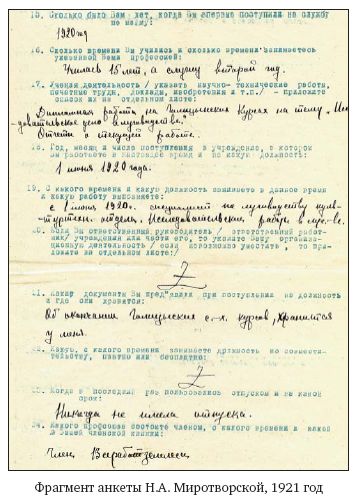 15. Сколько было Вам лет, когда Вы впервые поступили на службу
по найму:
1920 год
16. Сколько времени Вы учились и сколько времени занимаетесь
указанной Вами профессией:
Училась 15 лет, а служу второй год.
17. Ученая деятельность / указать научно-технические работы,
печатные труды, доклады, изобретения и т.п./ - приложите
список их на отдельном листе:
работа на Голицынских курсах на тему
дело в луговодстве".
Отчеты о текущей работе.
18. Год, месяц и число поступления в учреждение, в котором
Вы работаете в настоящее время и на какую должность:
1 июня 1920 года.
19. С какого времени и какую должность занимаете в данное время
и какую работу выполняете:
с 1 июня 1920г. специалист по луговодству куль-
отдела.
20. Если Вы ответственный руководитель / ответственный работ-
ник/ учреждения или части его, то укажите Вашу организа-
ционную деятельность / если возможно уместить, то при-
ложите на отдельном листе:/
Z
21. Какие документы Вы предъявили при поступлении на должность
и где они хранятся:
Об окончании Голицынских с.-х. курсов, хранится
у меня.
22. Какую, с какого времени занимаете должность по совмести-
тельству, платно или бесплатно:
Z
23. Когда в последний раз пользовались отпуском и на какой
срок:
Никогда не имела отпуска.
24. Какого профсоюза состоите членом, с какого времени и какой
№ Вашей членской книжки:
Член Всеработземлеса
Фрагмент анкеты Н.А. Миротворской, 1921 год